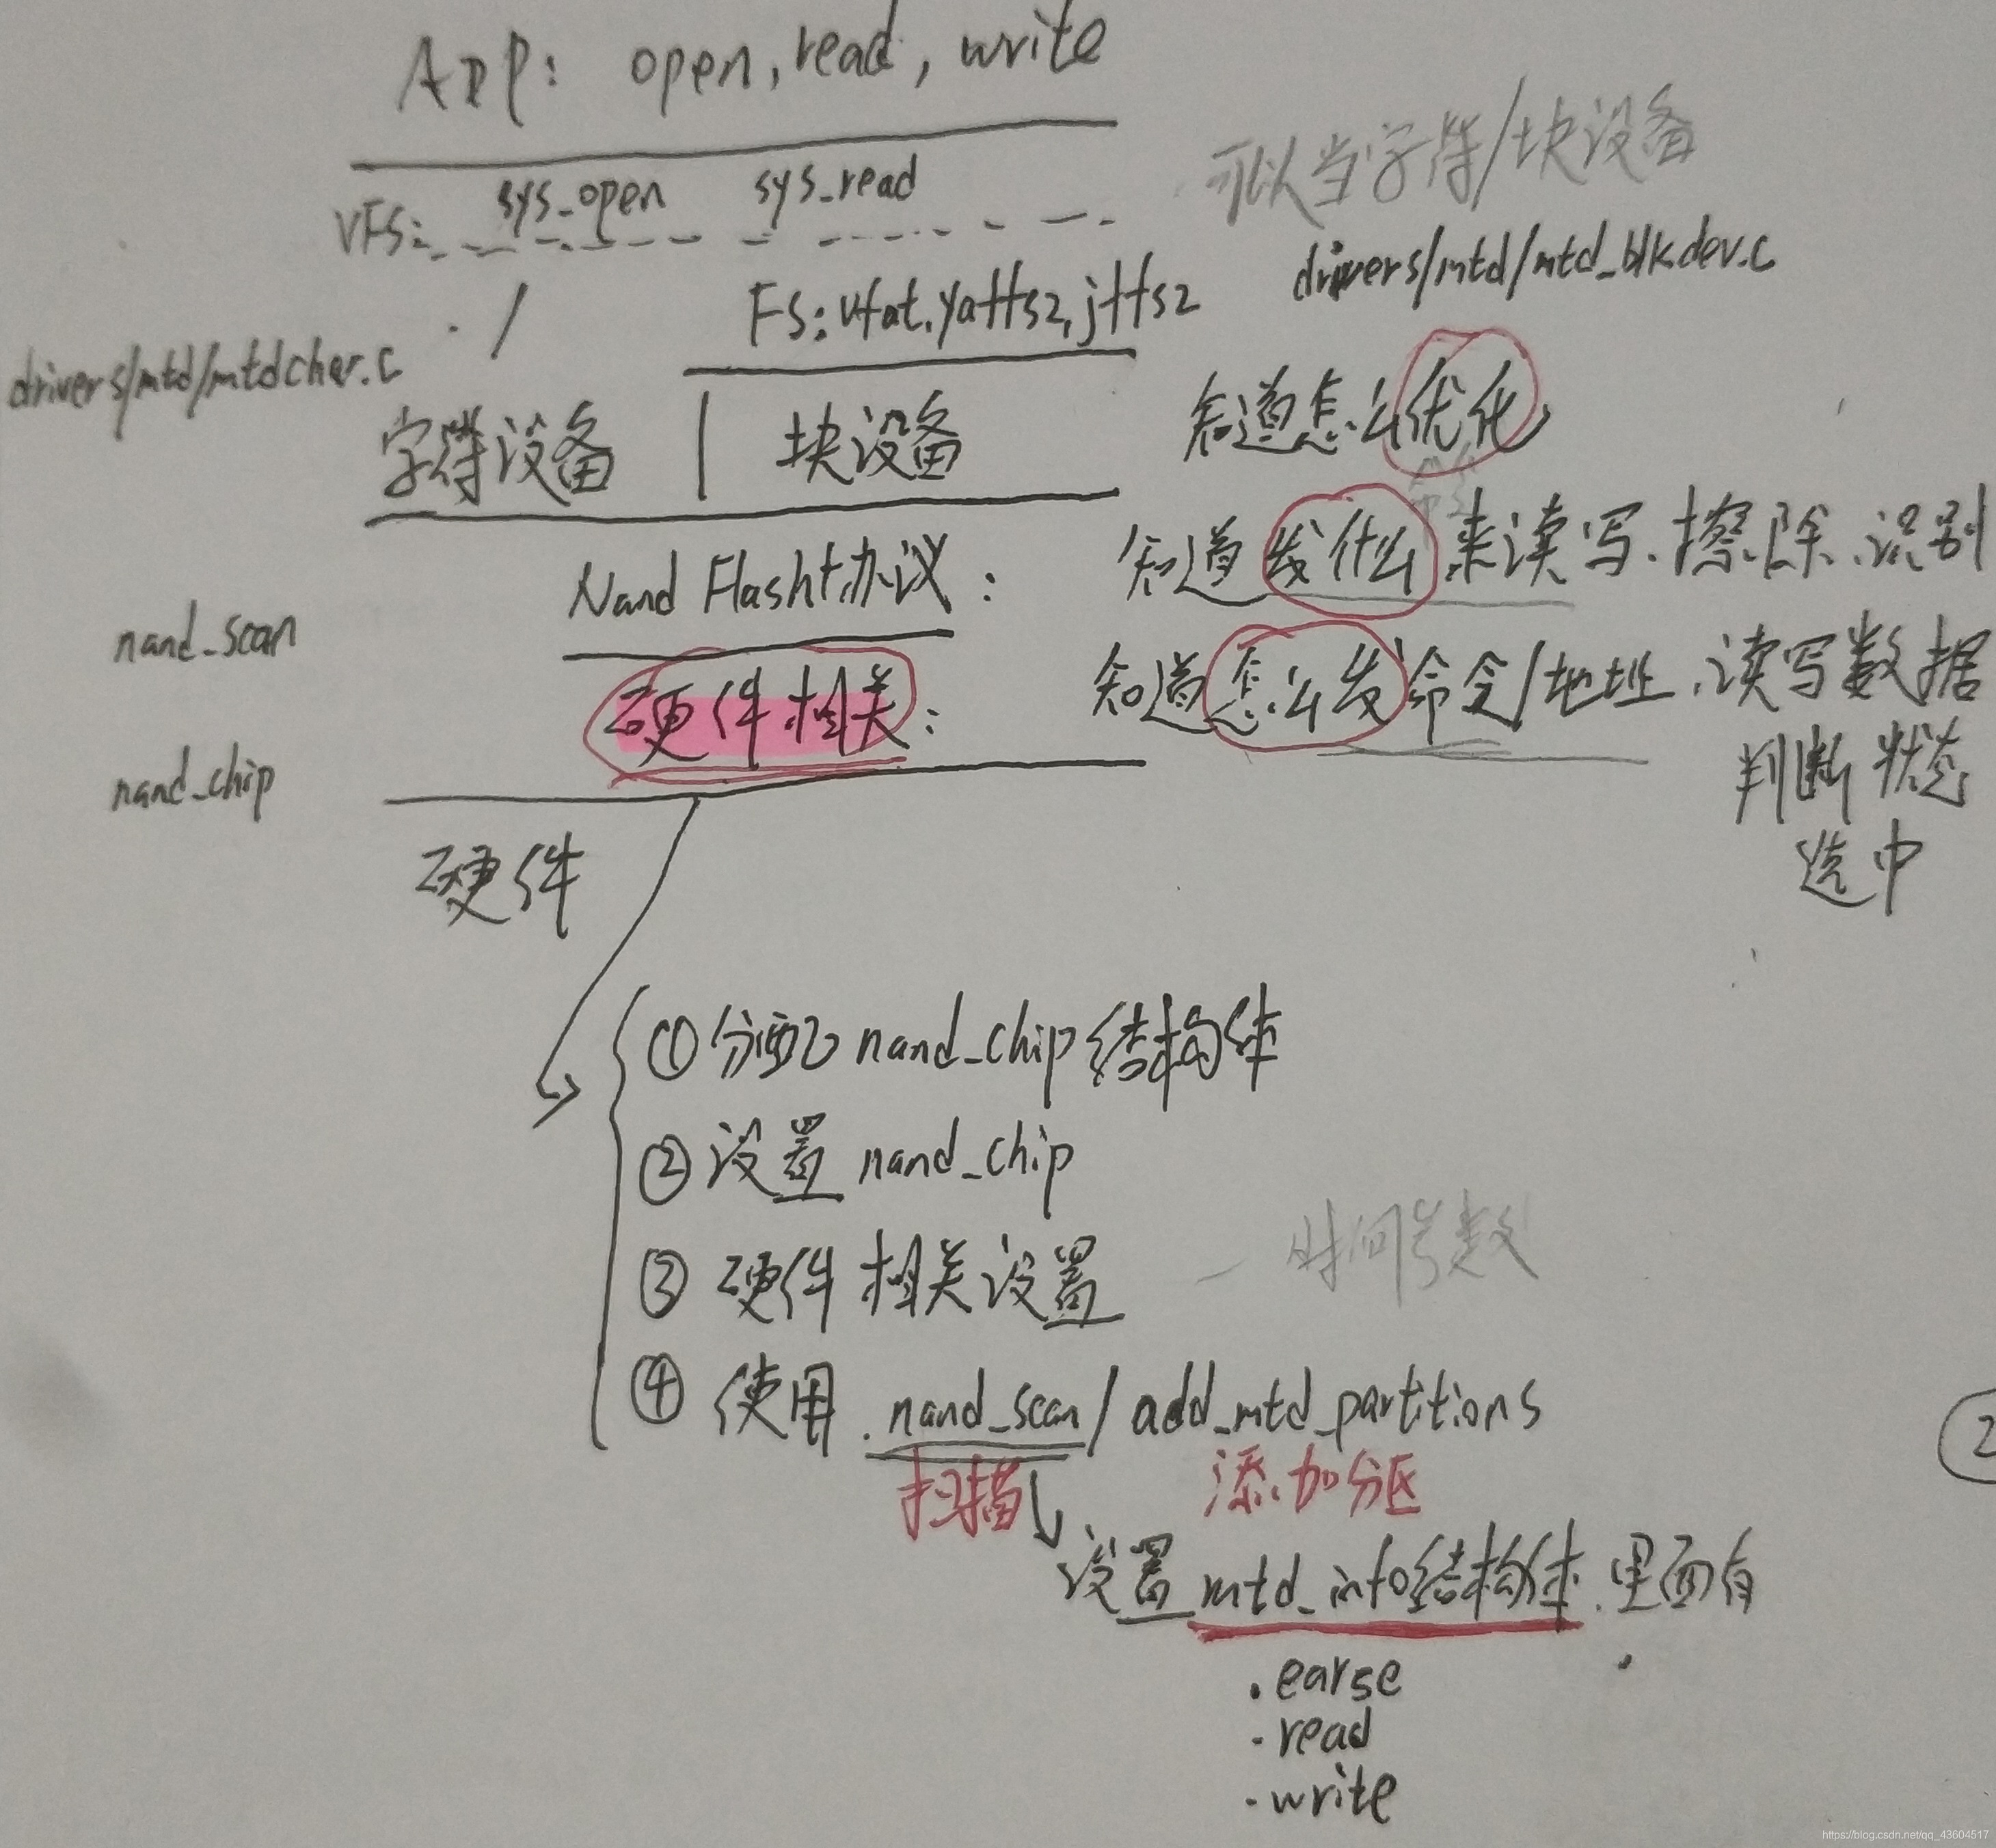 APP: open, read, write
可以当字符/块设备
VFS: sys_open sys_read
drivers/mtd/mtd_blkdev.c
FS: vfat, yaffs2, jffs2
drivers/mtd/mtdchar.c
字符设备 | 块设备
知道怎么优化
Nand Flash协议:
知道发什么来读写、擦除、识别
nand_scan
硬件相关:
知道怎么发命令/地址、读写数据
判断状态
选中
nand_chip
硬件
①分配nand_chip结构体
②设置 nand_chip
③ 硬件相关设置 — 时间
④ 使用 nand_scan/add_mtd_partitions
扫描 添加分区
设置mtd_info结构体.里面有
.earse
.read
.write
②
https://blog.csdn.net/qq_43604517